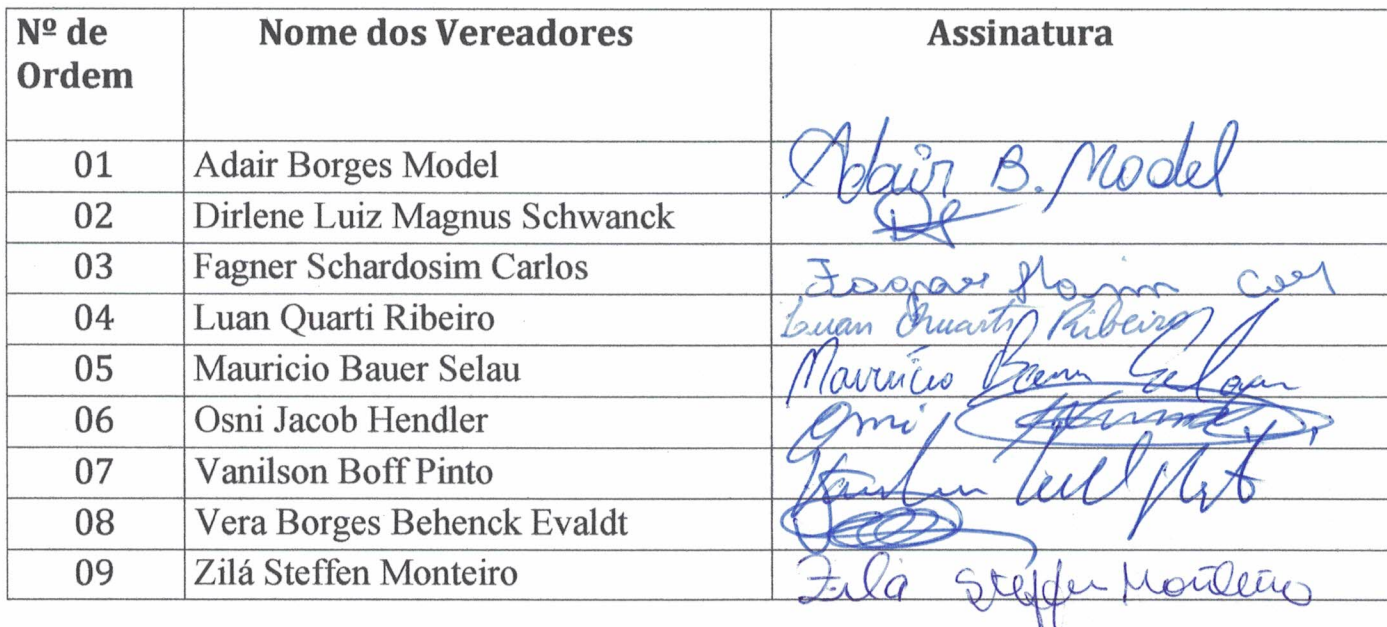 Nº de Ordem Nome dos Vereadores Assinatura
01 Adair Borges Model Adair B. Model
02 Dirlene Luiz Magnus Schwanck
03 Fagner Schardosim Carlos
04 Luan Quarti Ribeiro Luan Ribeiro
05 Mauricio Bauer Selau Mauricio Bauer Selau
06 Osni Jacob Hendler Osni
07 Vanilson Boff Pinto
08 Vera Borges Behenck Evaldt
09 Zilá Steffen Monteiro Zilá Steffen Monteiro